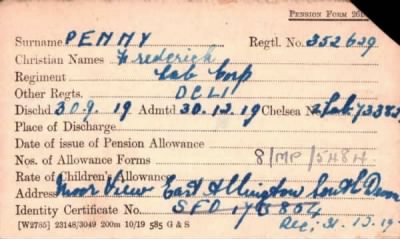 PENSION FORM
Surname PENNY Regtl. No. 352629
Christian Names Frederick
Regiment Lab Corp
Other Regts. DCLI
Dischd 30 9. 19 Admtd 30.12.19 Chelsea
Place of Discharge
Date of issue of Pension Allowance
Nos. of Allowance Forms 8/MP/5484
Rate of Children's Allowance
Address Moor View East Allington South Devon
Identity Certificate No.
[W2785] 23148/3049 200m 10/19 585 G & S